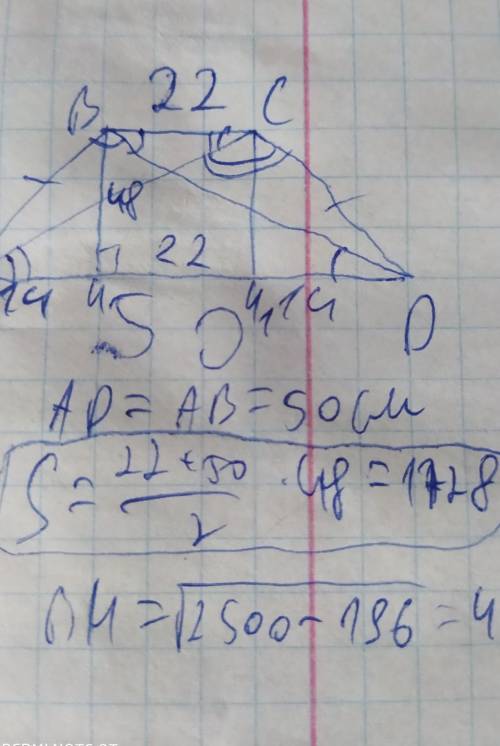 22
B C
48
22
14 H H₁ 14
50 D
AD = AB = 50 см
S = 22 + 50 / 2 · 48 = 1728
BH = √2500 - 196 = 4